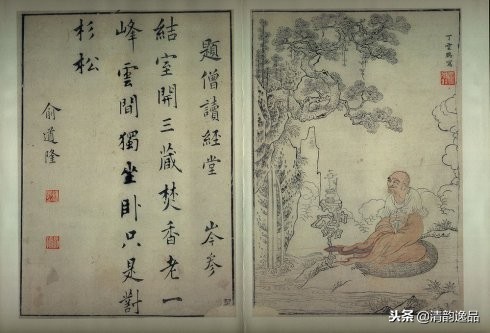 丁雲鵬寫
題僧讀經堂 岑參
結室開三藏焚香老一
峰雲間獨坐卧只是對
杉松
俞道隆
头条@清韵逸品